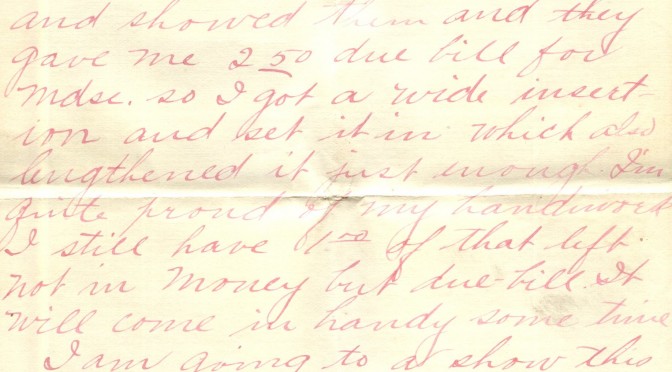 and showed them and they
gave me 2 50 due bill for
mdse. so I got a wide insert-
ion and set it in which also
lengthened it just enough. I'm
quite proud of my handiwork
I still have 1 00 of that left.
not in money but due-bill. It
will come in handy some time
I am going to a show this